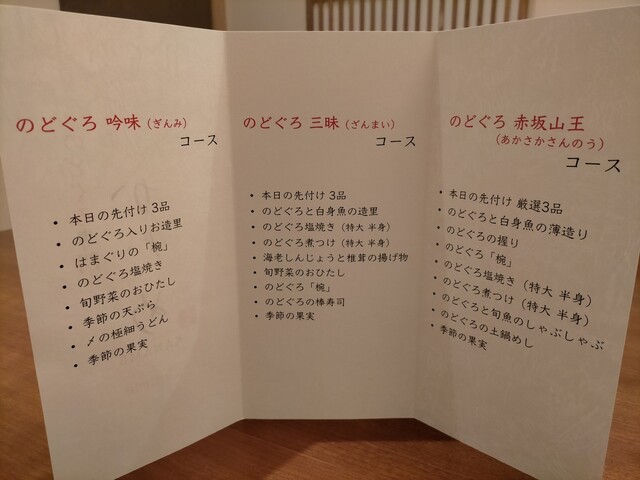 のどぐろ 吟味（ぎんみ）
コース
• 本日の先付け 3品
• のどぐろ入りお造里
• はまぐりの「椀」
• のどぐろ塩焼き
• 旬野菜のおひたし
• 季節の天ぷら
• 〆の極細うどん
• 季節の果実
のどぐろ 三昧（ざんまい）
コース
• 本日の先付け 3品
• のどぐろと白身魚の造里
• のどぐろ塩焼き（特大 半身）
• のどぐろ煮つけ（特大 半身）
• 海老しんじょうと椎茸の揚げ物
• 旬野菜のおひたし
• のどぐろ「椀」
• のどぐろの棒寿司
• 季節の果実
のどぐろ 赤坂山王
（あかさかさんのう）
コース
• 本日の先付け 厳選3品
• のどぐろと白身魚の薄造り
• のどぐろの握り
• のどぐろ「椀」
• のどぐろ塩焼き（特大 半身）
• のどぐろ煮つけ（特大 半身）
• のどぐろと旬魚のしゃぶしゃぶ
• のどぐろの土鍋めし
• 季節の果実